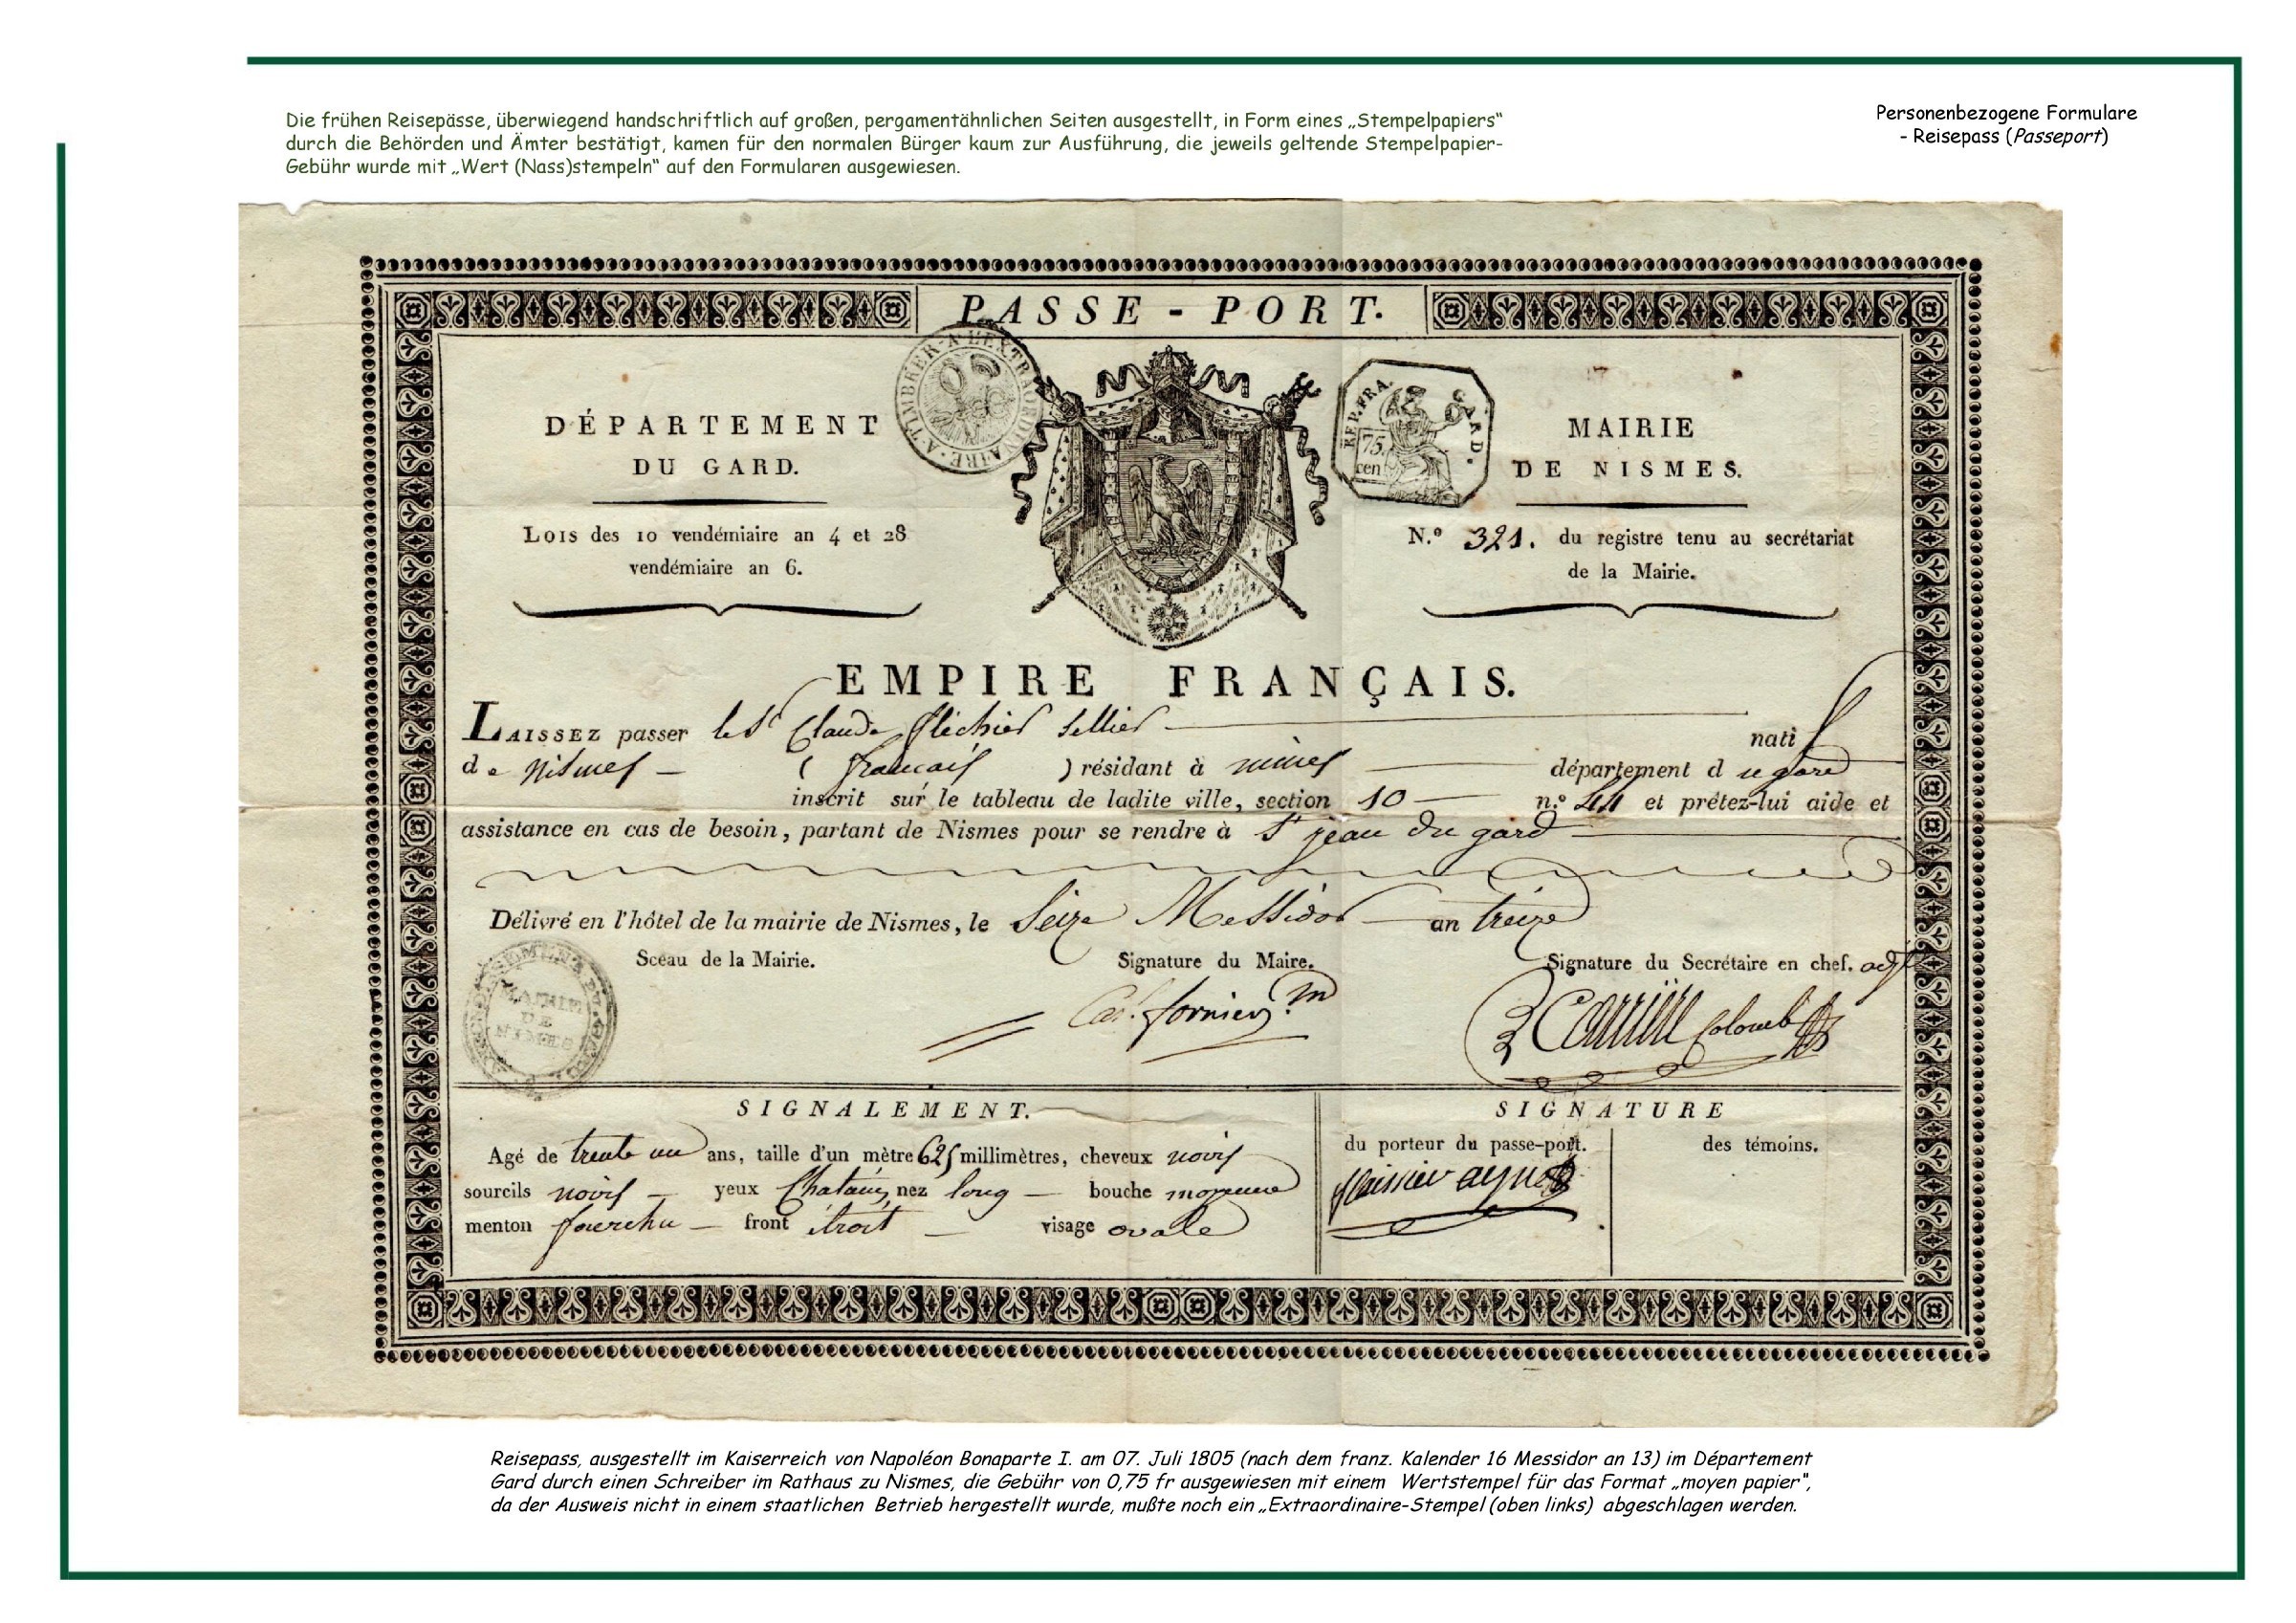 Die frühen Reisepässe, überwiegend handschriftlich auf großen, pergamentähnlichen Seiten ausgestellt, in Form eines „Stempelpapiers“
durch die Behörden und Ämter bestätigt, kamen für den normalen Bürger kaum zur Ausführung, die jeweils geltende Stempelpapier-
Gebühr wurde mit „Wert (Nass)stempeln“ auf den Formularen ausgewiesen.
Personenbezogene Formulare
- Reisepass (Passeport)
PASSE-PORT.
A TIMBRER A L'EXTRAORDINAIRE
REP. FRA. GARD.
75.
cen
DÉPARTEMENT
DU GARD.
MAIRIE
DE NISMES.
Lois des 10 vendémiaire an 4 et 28
vendémiaire an 6.
N.º 321. du registre tenu au secrétariat
de la Mairie.
EMPIRE FRANÇAIS.
Laissez passer le Sr Claude fléchier sellier natif
de Nismes (français) résidant à nimes département du gard
inscrit sur le tableau de ladite ville, section 10 n.º 44 et prêtez-lui aide et
assistance en cas de besoin, partant de Nismes pour se rendre à St jean du gard
Délivré en l'hôtel de la mairie de Nismes, le Seize Messidor an treize
Sceau de la Mairie. Signature du Maire. Signature du Secrétaire en chef. adj
MAIRIE
DE
NIMES
fornier m
Colomb
SIGNALEMENT.
Agé de trente un ans, taille d'un mètre 625 millimètres, cheveux noirs
sourcils noirs yeux Chatains nez long bouche moyenne
menton fourchu front étroit visage ovale
SIGNATURE
du porteur du passe-port. des témoins.
Reisepass, ausgestellt im Kaiserreich von Napoléon Bonaparte I. am 07. Juli 1805 (nach dem franz. Kalender 16 Messidor an 13) im Département
Gard durch einen Schreiber im Rathaus zu Nismes, die Gebühr von 0,75 fr ausgewiesen mit einem Wertstempel für das Format „moyen papier“,
da der Ausweis nicht in einem staatlichen Betrieb hergestellt wurde, mußte noch ein „Extraordinaire-Stempel (oben links) abgeschlagen werden.